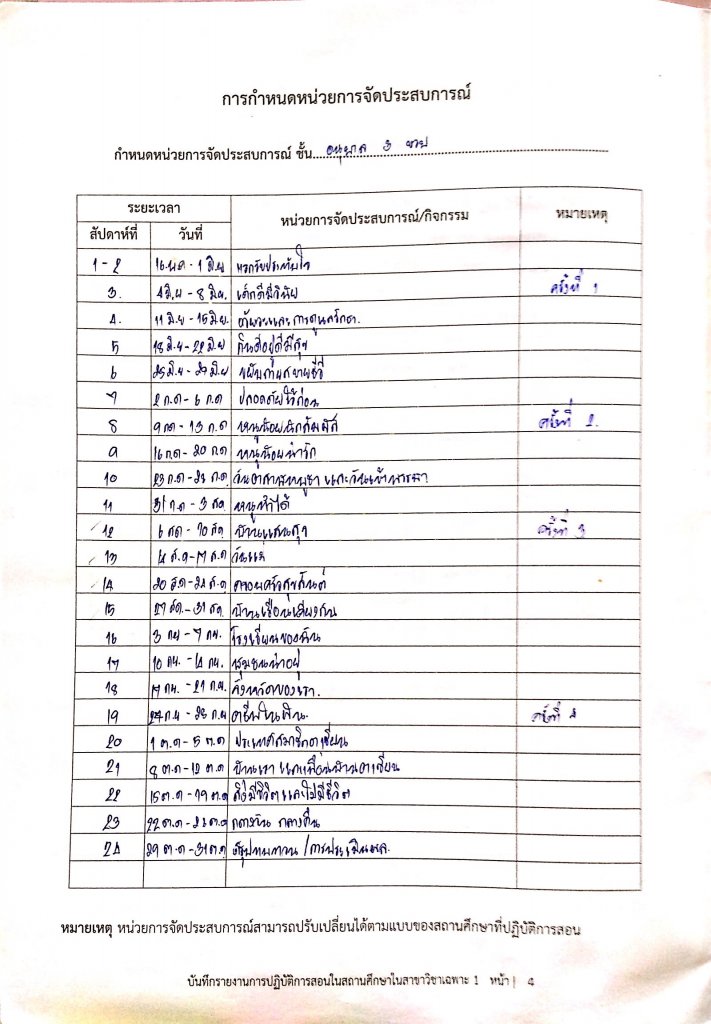 การกำหนดหน่วยการจัดประสบการณ์
กำหนดหน่วยการจัดประสบการณ์ ชั้น อนุบาล 3 ขวบ
ระยะเวลา หน่วยการจัดประสบการณ์/กิจกรรม หมายเหตุ
สัปดาห์ที่ วันที่
1 - 2 16 พ.ค - 1 มิ.ย แรกรับประทับใจ
3. 4 มิ.ย - 8 มิ.ย. เด็กดีมีวินัย ครั้งที่ 1
4. 11 มิ.ย - 15 มิ.ย. อวัยวะและการดูแลรักษา.
5 18 มิ.ย - 22 มิ.ย กินดีอยู่ดีมีสุข
6 25 มิ.ย - 29 มิ.ย ขยับกายสบายชีวี
7 2 ก.ค - 6 ก.ค ปลอดภัยไว้ก่อน
8 9 ก.ค - 13 ก.ค หนูน้อยนักสัมผัส ครั้งที่ 2.
9 16 ก.ค - 20 ก.ค หนูน้อยน่ารัก
10 23 ก.ค - 26 ก.ค. วันอาสาฬหบูชา และวันเข้าพรรษา
11 31 ก.ค - 3 ส.ค หนูทำได้
12 6 ส.ค - 10 ส.ค บ้านแสนสุข ครั้งที่ 3
13 14 ส.ค - 17 ส.ค วันแม่
14 20 ส.ค - 24 ส.ค ครอบครัวสุขสันต์
15 27 ส.ค. - 31 ส.ค.
16 3 ก.ย - 7 ก.ย. โรงเรียนของฉัน
17 10 ก.ย. - 14 ก.ย. ชุมชนน่าอยู่
18 17 ก.ย. - 21 ก.ย. จังหวัดของเรา.
19 24 ก.ย - 28 ก.ย อาชีพในฝัน. ครั้งที่ 4
20 1 ต.ค - 5 ต.ค ประเทศสมาชิกอาเซียน
21 8 ต.ค - 12 ต.ค บ้านเรา และเพื่อนบ้านอาเซียน
22 15 ต.ค - 19 ต.ค สิ่งมีชีวิตและไม่มีชีวิต
23 22 ต.ค - 26 ต.ค กลางวัน กลางคืน
24 29 ต.ค - 31 ต.ค สรุปทบทวน / การประเมินผล.
หมายเหตุ หน่วยการจัดประสบการณ์สามารถปรับเปลี่ยนได้ตามแบบของสถานศึกษาที่ปฏิบัติการสอน
บันทึกรายงานการปฏิบัติการสอนในสถานศึกษาในสาขาวิชาเฉพาะ 1 หน้า | 4